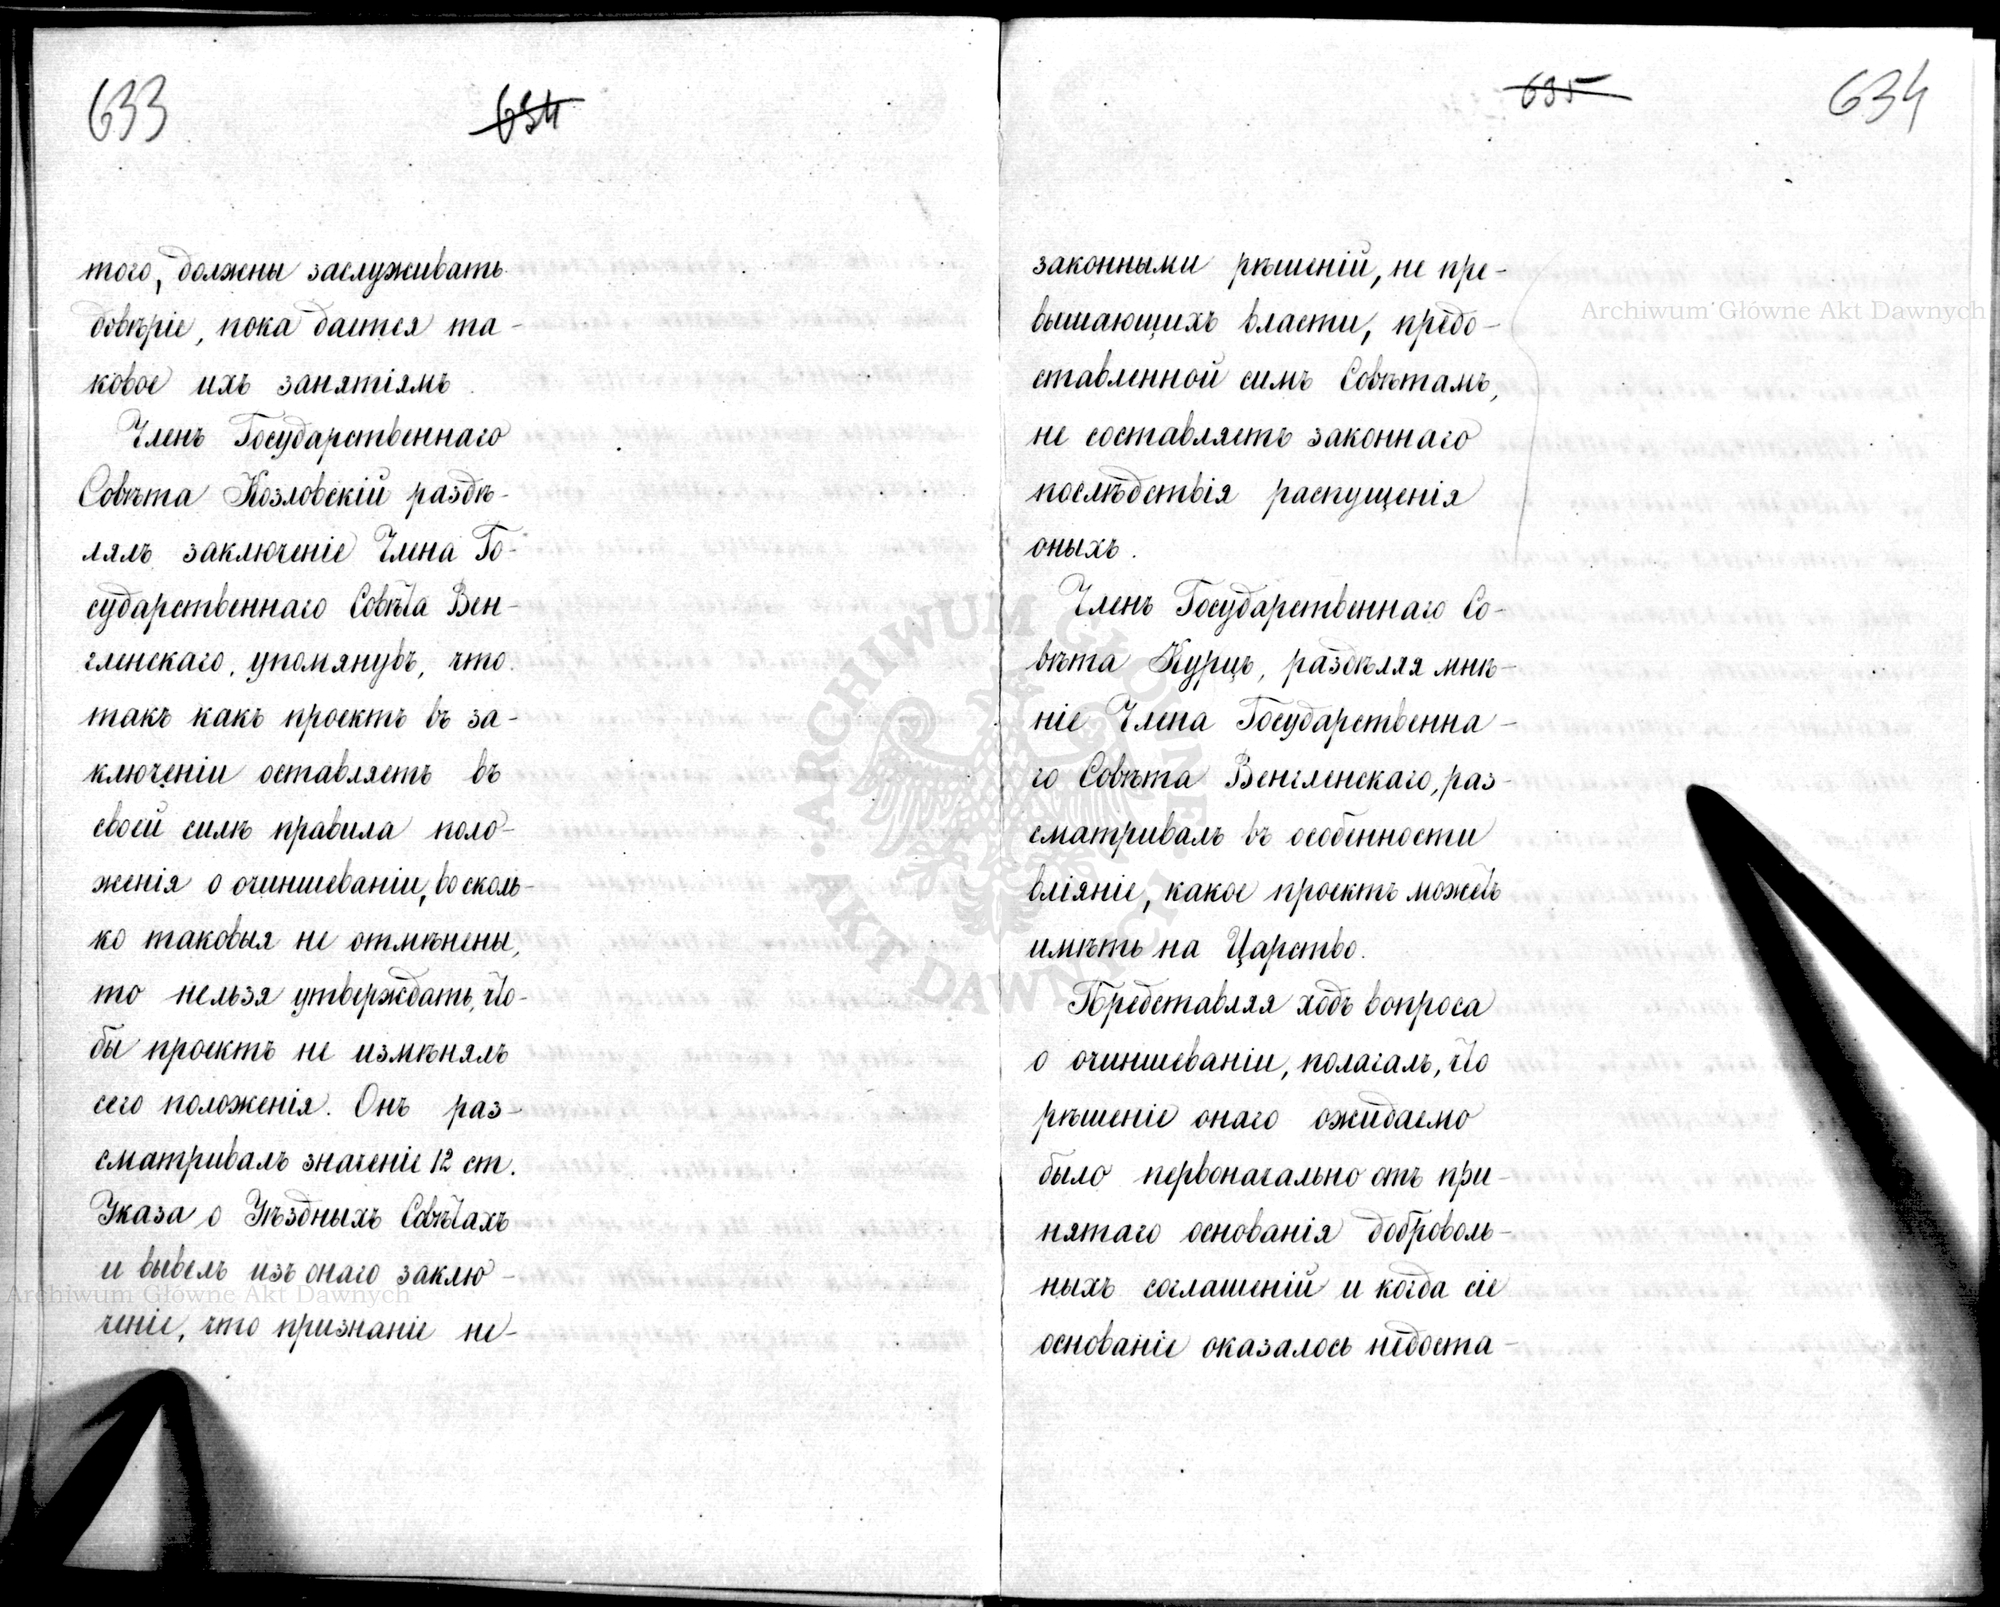 633
634
того, должны заслуживать
довѣріе, пока дается та-
ковое ихъ занятіямъ.
Членъ Государственнаго
Совѣта Козловскій раздѣ-
лялъ заключеніе Члена Го-
сударственнаго Совѣта Вен-
гленскаго, упомянувъ, что
такъ какъ проектъ въ за-
ключеніи оставляетъ въ
своей силѣ правила поло-
женія о очиншеваніи, восколь-
ко таковыя не отмѣнены,
то нельзя утверждать, что-
бы проектъ не измѣнялъ
сего положенія. Онъ раз-
сматривалъ значеніе 12 ст.
Указа о Уѣздныхъ Совѣтахъ
и вывелъ изъ онаго заклю-
ченіе, что признаніе не-
635
634
законными рѣшеній, не пре-
вышающихъ власти, предо-
ставленной симъ Совѣтамъ,
не составляетъ законнаго
послѣдствія распущенія
оныхъ.
Членъ Государственнаго Со-
вѣта Курцъ, раздѣляя мнѣ-
ніе Члена Государственна-
го Совѣта Венгленскаго, раз-
сматривалъ въ особенности
вліяніе, какое проектъ можетъ
имѣть на Царство.
Представляя ходъ вопроса
о очиншеваніи, полагалъ, что
рѣшеніе онаго ожидаемо
было первоначально отъ при-
нятаго основанія доброволь-
ныхъ соглашеній и когда сіе
основаніе оказалось недоста-
Archiwum Główne Akt Dawnych
Archiwum Główne Akt Dawnych
ARCHIWUM GŁÓWNE AKT DAWNYCH